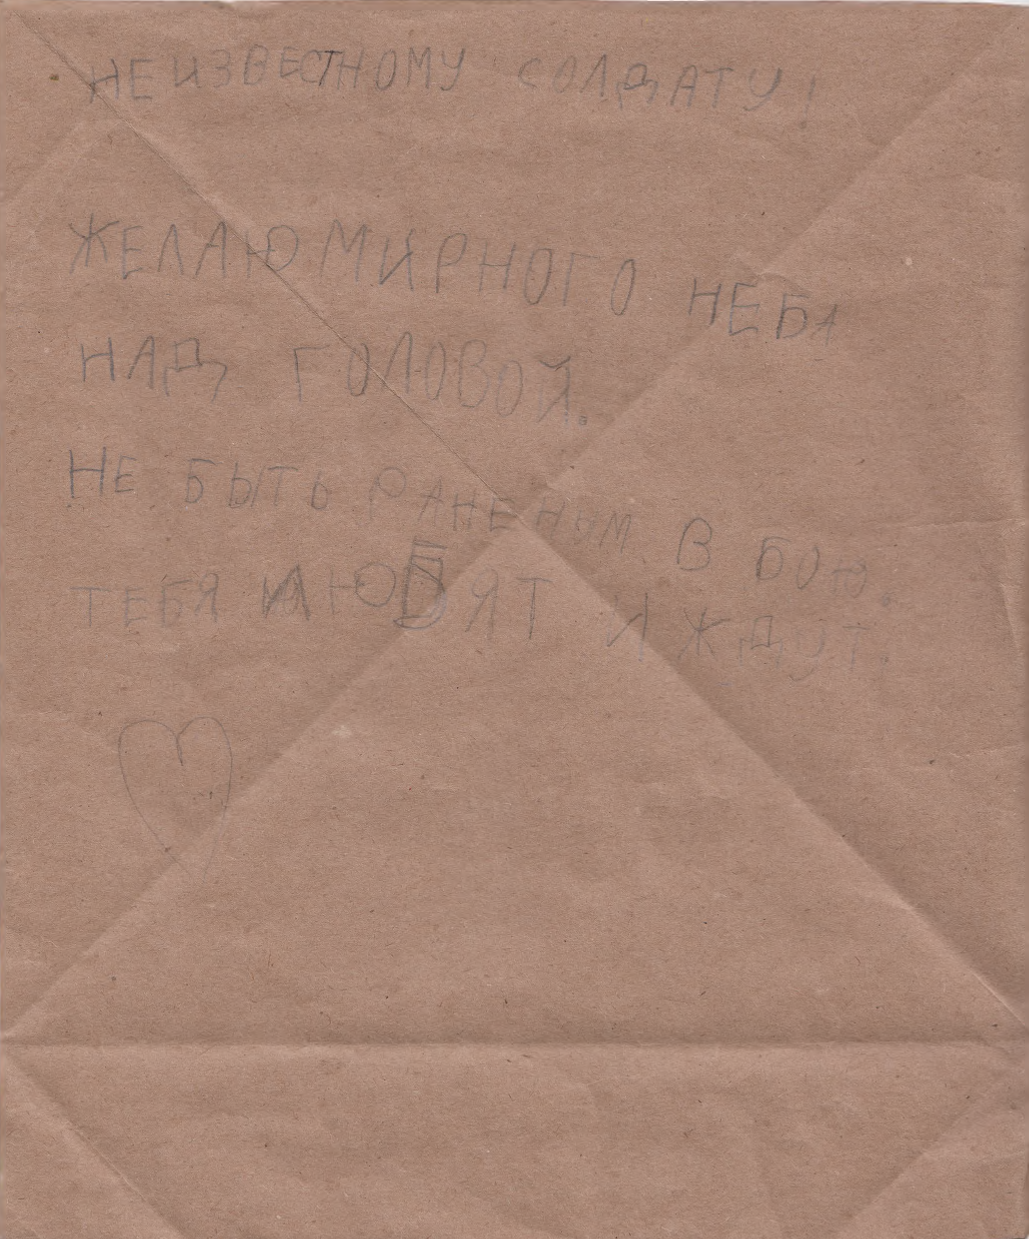 НЕИЗВЕСТНОМУ СОЛДАТУ!
ЖЕЛАЮ МИРНОГО НЕБА
НАД ГОЛОВОЙ.
НЕ БЫТЬ РАНЕНОМ В БОЮ.
ТЕБЯ ЛЮБЯТ И ЖДУТ.